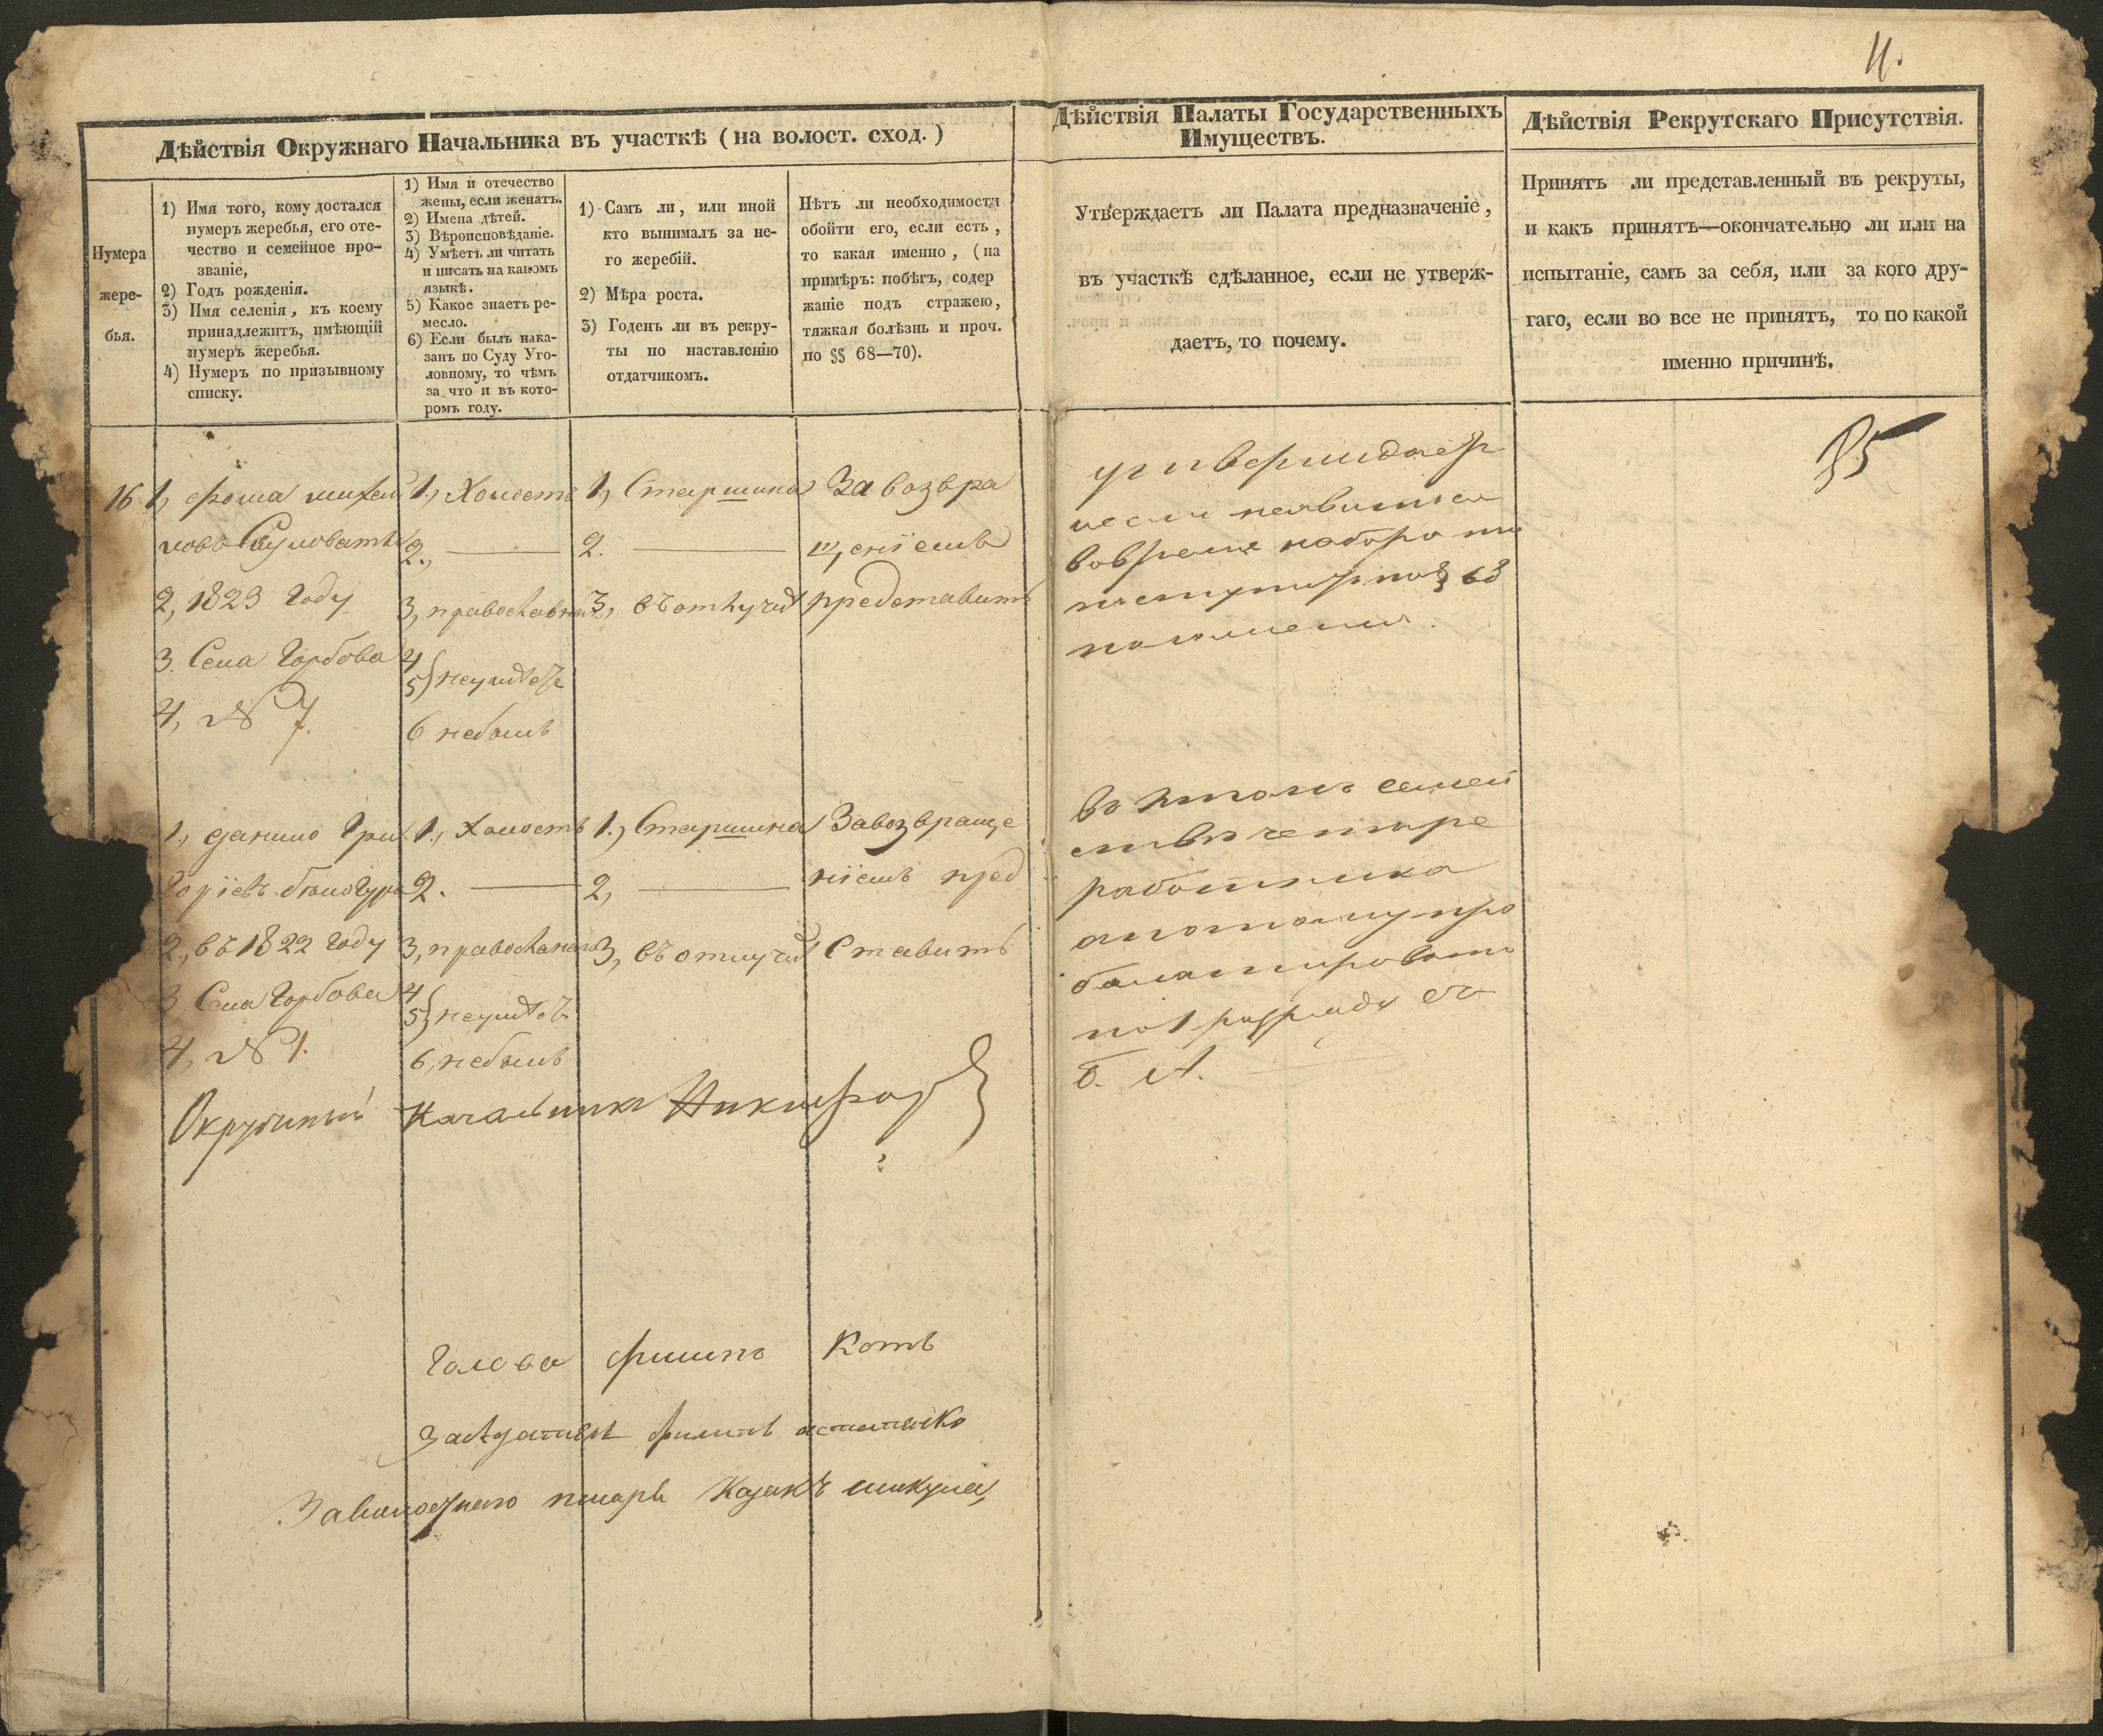 11.
Дѣйствія Окружнаго Начальника въ участкѣ (на волост. сход.)
Нумера
жере-
бья.
1) Имя того, кому достался
нумеръ жеребья, его оте-
чество и семейное про-
званіе,
2) Годъ рожденія.
3) Имя селенія, къ коему
принадлежитъ, имѣющій
нумеръ жеребья.
4) Нумеръ по призывному
списку.
1) Имя и отечество
жены, если женатъ.
2) Имена дѣтей.
3) Вѣроисповѣданіе.
4) Умѣетъ ли читать
и писать на какомъ
языкѣ.
5) Какое знаетъ ре-
месло.
6) Если былъ нака-
занъ по Суду Уго-
ловному, то чѣмъ
за что и въ кото-
ромъ году.
1) Самъ ли, или иной
кто вынималъ за не-
го жеребій.
2) Мѣра роста.
3) Годенъ ли въ рекру-
ты по наставленію
отдатчикомъ.
Нѣтъ ли необходимости
обойти его, если есть,
то какая именно, (на
примѣръ: побѣгъ, содер
жаніе подъ стражею,
тяжкая болѣзнь и проч.
по §§ 68—70).
Дѣйствія Палаты Государственныхъ
Имуществъ.
Утверждаетъ ли Палата предназначеніе,
въ участкѣ сдѣланное, если не утверж-
даетъ, то почему.
Дѣйствія Рекрутскаго Присутствія.
Принятъ ли представленный въ рекруты,
и какъ принятъ—окончательно ли или на
испытаніе, самъ за себя, или за кого дру-
гаго, если во все не принятъ, то по какой
именно причинѣ.
16
1, фома михай
ловъ
2, 1823 году
3. Села Горбова
4, № 7.
1., Холостъ
2., —
3, православна
4
5} неумѣетъ
6 небылъ
1, Старшина
2. —
3, въ отлучкѣ
За возвра
щеніемъ
представить
утверждаетъ
если неявится
вовремя набора то
поступитъ по § 68
положенія.
1., данило Гри
горіевъ
2., въ 1822 году
3 Села Горбова
4, № 1.
1., Холостъ
2. —
3, православна
4
5} неумѣетъ
6, небылъ
1., Старшина
2, —
3, въ отлучкѣ
Завозвраще
ніемъ пред
ставить
въ этомъ семей
ствѣ четыре
работника
апотому про
балатировать
по 1 разряду
Окружный Начальникъ Никифор
Голова филипъ Котъ
Засѣдатель филипъ остапенко
Заволостнаго писаря Казакъ шикула